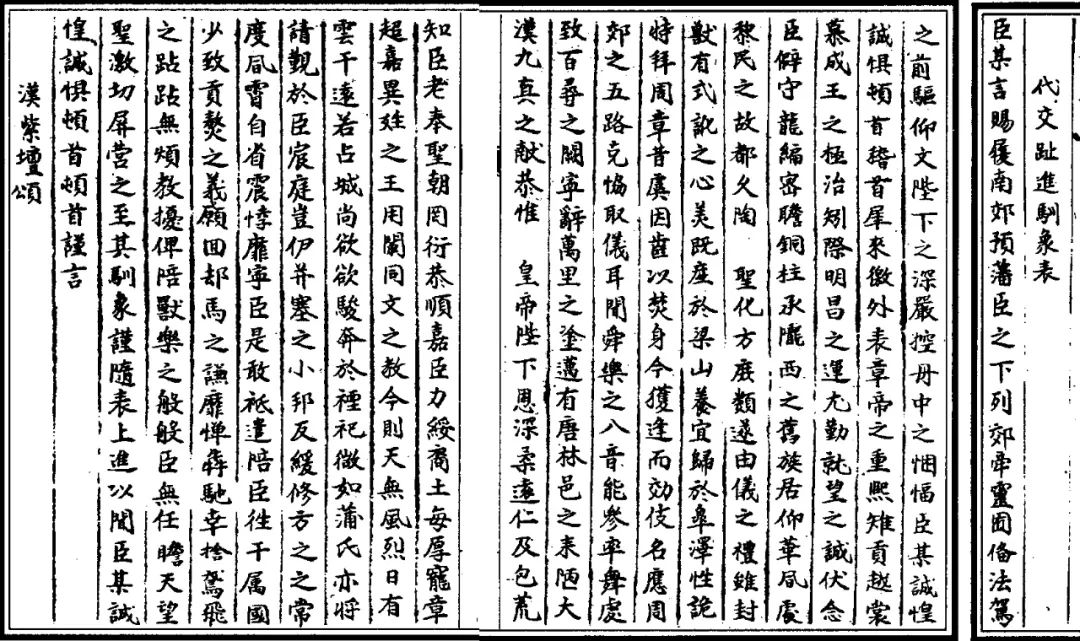 代交趾進馴象表
臣某言賜履南郊預藩臣之下列郊帝靈囿俻法駕
之前驅仰文陛下之深嚴控毋中之悃愊臣某誠惶
誠惧頓首䭫首犀來徼外表章帝之重熙雉貢越裳
慕成王之極治矧際明昌之運尤勤就望之誠伏念
臣僻守龍編密瞻銅柱承隴西之舊族居仰華風處
黎民之故都久陶 聖化方庶類遂由儀之禮雖封
獸有式訛之心美既產於梁山養宜歸於皋澤性詭
特拜周章昔虞因齒以焚身今獲逢而効伎名應周
郊之五路克恊取儀耳聞舜樂之八音能參率舞處
致百尋之闕寧辭萬里之塗邁有唐林邑之來陋大
漢九真之献恭惟 皇帝陛下恩深柔遠仁及包荒
知臣老奉聖朝罔衍恭順嘉臣力綏裔土每厚寵章
超嘉異姓之王用闡同文之教今則天無風烈日有
雲干遠若占城尚欲欲駿奔於禋祀微如蒲氏亦将
請觀於臣宸庭豈伊并塞之小邦反緩修方之之常
度風霄自省震悸靡寧臣是敢祗遣陪臣徃干属國
少致貢獒之義願回却馬之謙靡惮犇馳幸捨駕飛
之跕跕無煩教擾俾陪獸樂之般般臣無任瞻天望
聖激切屏营之至其馴象謹隨表上進以聞臣某誠
惶誠惧頓首頓首謹言
漢紫壇頌